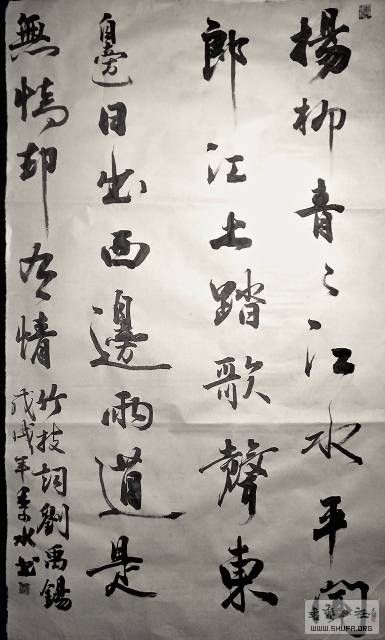 楊柳青〻江水平聞
郎江上踏歌聲東
邊日出西邊雨道是
無情却有情
竹枝詞劉禹錫
戊戌年水书
WWW.SHUFA.ORG